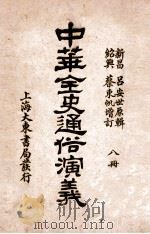 新昌 呂安世原輯
紹興 蔡東帆增訂
八冊
中華全史通俗演義
上海大東書局發行